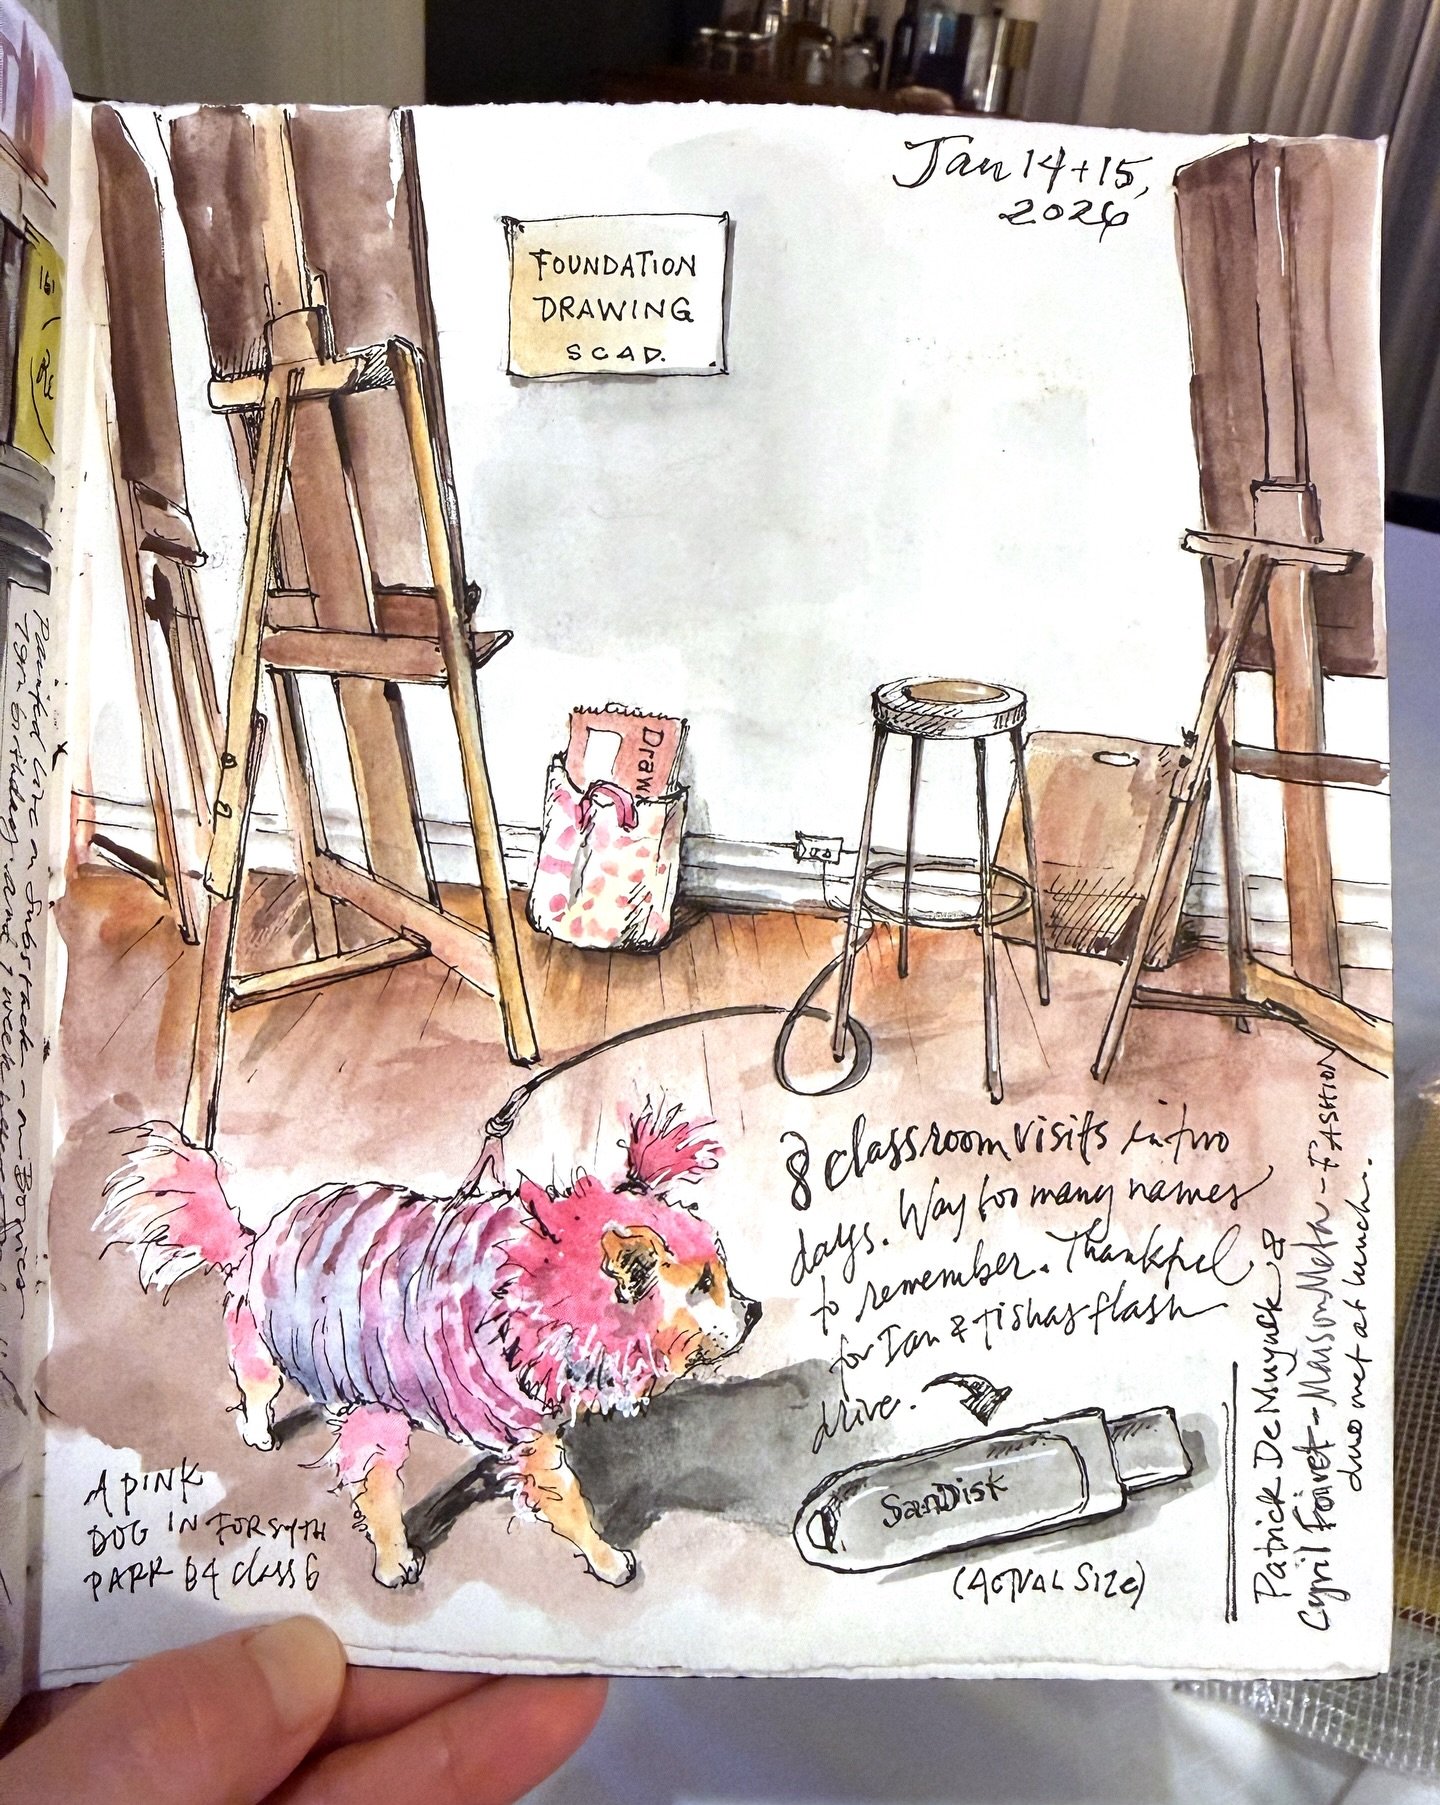 Jan 14+15,
2026
FOUNDATION
DRAWING
SCAD.
Drawi
8 classroom visits in two
days. Way too many names
to remember. Thankful
for Ian & Tishas flash
drive.
SanDisk
(ACTUAL SIZE)
A PINK
DOG IN FORSYTH
PARK B4 class 6
Patrick De Muynck &
Cyril Foiret - Maison Meta - FASHION
duo met at lunch.